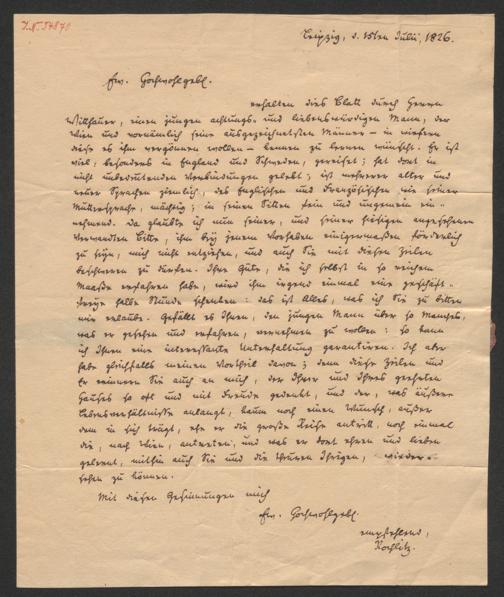 I.N. 34870
Leipzig, d. 15ten Julii, 1826.
Ew. Hochwohlgebl.
erhalten dies Blatt durch Herrn
Wilhäuser, einen jungen achtungs- und liebenswürdigen Mann, der
Wien und vornämlich seine ausgezeichnetsten Männer – in wiefern
diese es ihm vergönnen wollen – kennen zu lernen wünscht. Er ist
viel, besonders in England und Schweden, gereiset; hat dort in
nicht unbedeutenden Verbindungen gelebt; ist mehrerer alter und
neuer Sprachen ziemlich, des Englischen und Französischen wie seiner
Muttersprache, mächtig; in seinen Sitten fein und ungemein ein-
nehmend. Da glaubte ich nun seiner, und seiner hiesigen angesehenen
Verwandten Bitte, ihm bey jenem Vorhaben einigermaßen förderlich
zu seyn, mich nicht entziehen, und auch Sie mit diesen Zeilen
beschweren zu dürfen. Ihre Güte, die ich selbst in so reichem
Maaße erfahren habe, wird ihm irgend einmal eine geschäfts-
freye halbe Stunde schenken: das ist Alles, was ich Sie zu bitten
mir erlaube. Gefällt es Ihnen, den jungen Mann über so Manches,
was er gesehen und erfahren, vernehmen zu wollen: so kann
ich Ihnen eine interessante Unterhaltung garantiren. Ich aber
habe gleichfalls meinen Vortheil davon; denn diese Zeilen und
Er erinnern Sie auch an mich, der Ihrer und Ihres geehrten
Hauses so oft und mit Freude gedenkt, und der, was äußere
Lebensverhältnisse anlangt, kaum noch einen Wunsch, außer
dem in sich trägt, ehe er die große Reise antritt, noch einmal
die, nach Wien, anzutreten, und was er dort ehren und lieben
gelernt, mithin auch Sie und die theuren Ihrigen, wieder-
sehen zu können.
Mit diesen Gesinnungen mich
Ew. Hochwohlgebl.
empfehlend,
Rochlitz.